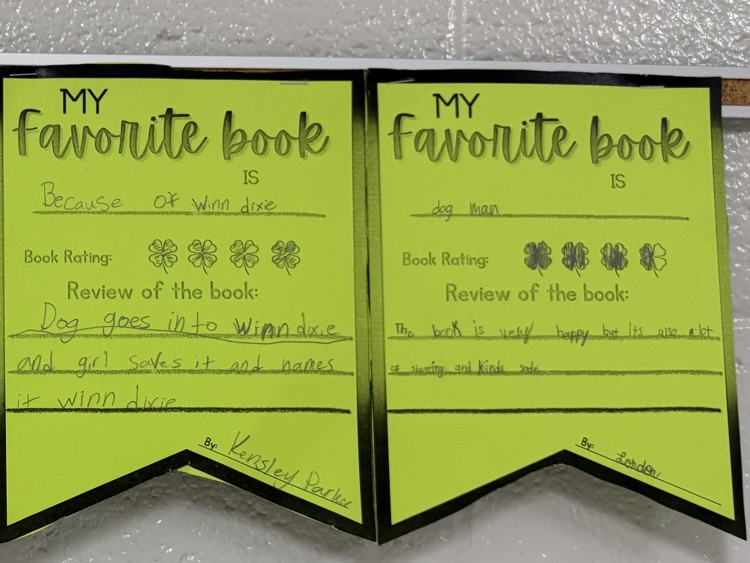 MY
favorite book
IS
Because of winn dixie
Book Rating:
Review of the book:
Dog goes into Winn dixie
and girl saves it and names
it winn dixie
By: Kensley Parker
MY
favorite book
IS
dog man
Book Rating:
Review of the book:
The book is very happy but its also alot
of and kinda sade
By: London